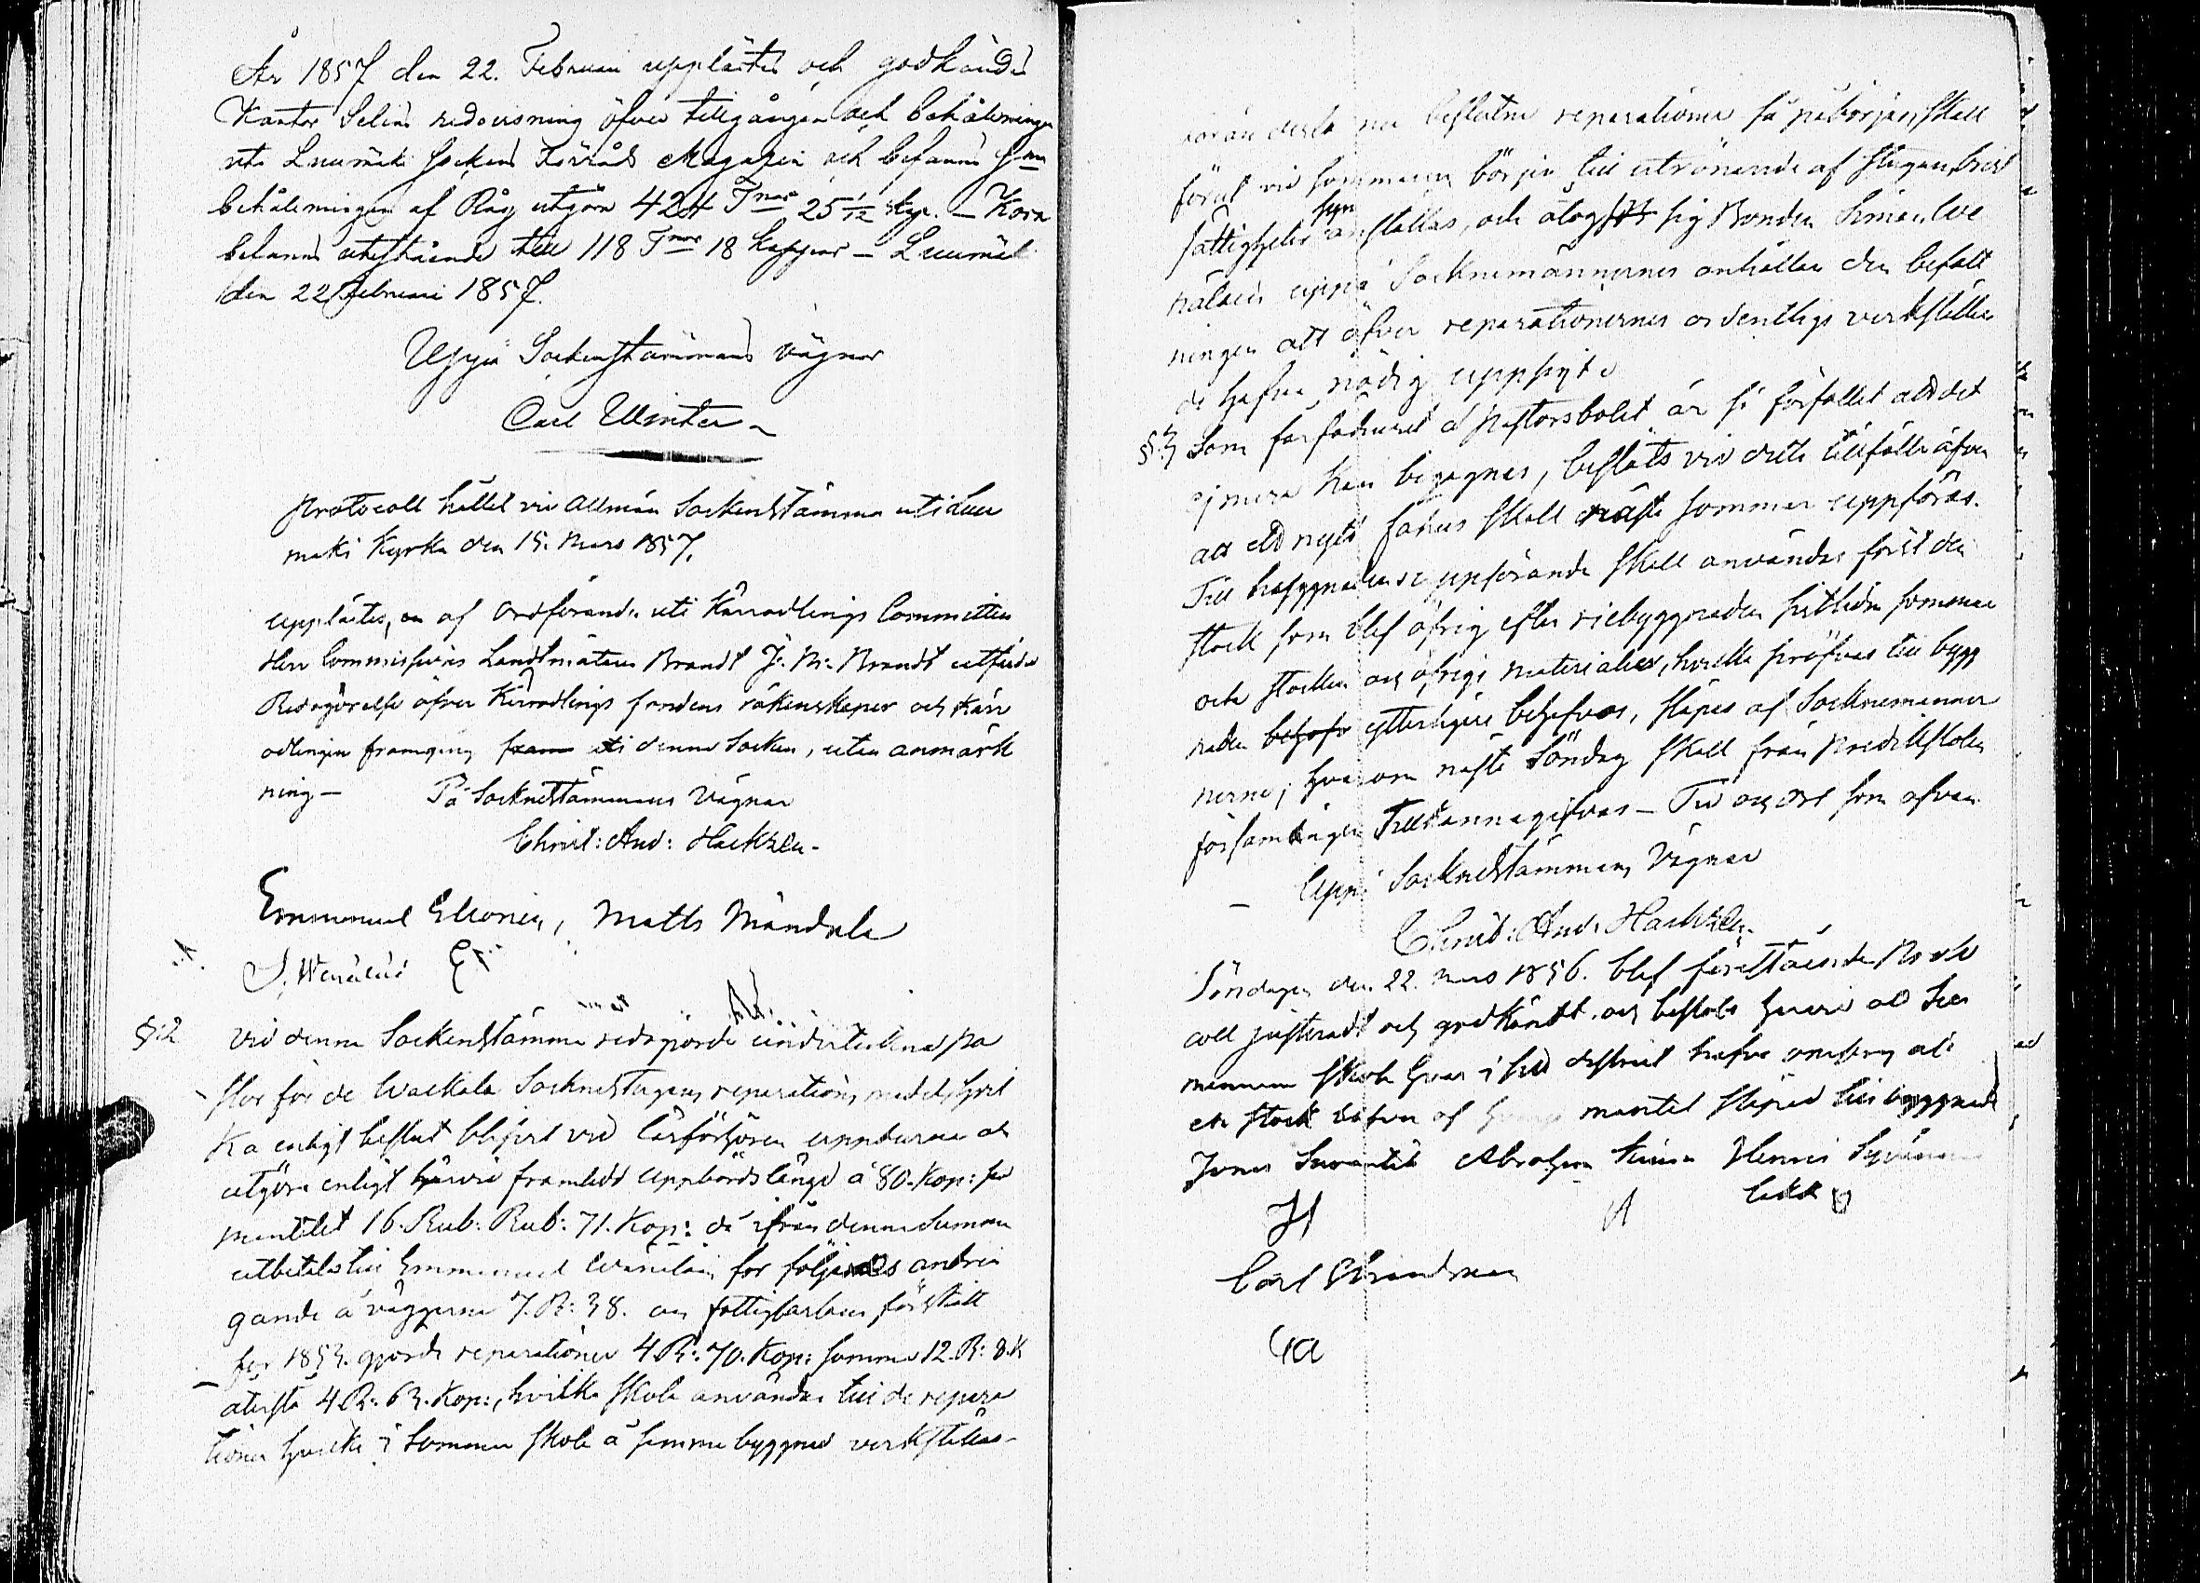 År 1857 den 22. Februari upplästes och godkändes
Kantor Selins redovisning öfver tillgången och behållningen
uti Luumäki Sockens Förråds Magazin och befanns
behållningen af Råg utgöra 424 Tnor 25 1/12 kpr. – Korn
befanns utestående till 118 Tnor 18 kappar – Luumäki
den 22 Februari 1857.
Uppå Sockenstämmans vägnar
Carl Winter
Protocoll hållet vid Allmän Sockenstämma uti Luu
mäki Kyrka den 15. Mars 1857.
Upplästes, en af Ordförande uti Kärrodlings Committen
Herr Commissions Landtmätaren Brandt J: M: Brandt utfärdad
Redogörelse öfver Kärrodlings fondens räkenskaper och Kärr
odlingens framgång uti denna Socken, utan anmärk
ning –
På Socknestämmans Vägnar
Christ: And: Hackzell.
Emmanuel Ellonen, Matts Mändule
§:2 Vid denna Sockenstämma redogjorde undertecknad Pa
stor för de Socknestugans reparations medel, hvil
ka enligt beslut blifvit vid läsförhören uppburne och
utgöra enligt härvid framlidd uppbördslängd a 80. Kop: per
mantalet 16. Rub: Rub: 71. Kop: då ifrån denna Summa
utbetales till Emmanuel för följande
gande å väggarne 7. R: 38. och förskott
för 1853. gjorde reparationer 4 R: 70. Kop: Summa 12. R: 8. K
återstå 4 R. 63. Kop:, hvilka skola användas till de repara
tioner hvilka i Sommar skola å samma byggnad verkställas –
innan desse nu beslutne reparationer få påbörjas, skall
förut vid sommarens början till utrönande af Stugans brist
fällighet syn anställas, och åtog sig Bonden Simon
uppå Socknemännernes anhållan den befatt
ningen att öfver reparationernes ordentliga verkställan
de hafva nödig uppsigt.
§:3 Som farfähuset å Pastorsbolet är så förfallet att det
ej mera kan begagnas, beslöts vid detta tillfälle äfven
att ett nytt fähus skall nästa sommar uppföras.
Till byggnadens uppförande skall användas först den
stock som blef öfrig efter riebyggnaden sistledne sommar
och stockar och öfriga materialier, hvilka pröfvas till bygg
naden ytterligare behöfvas, släpas af Socknemänner
nerne; hvarom nästa Söndag skall från Predikstolen
församlingen Tillkännagifvas – Tid och ort som ofvan
Uppå Socknestämmans Vägnar
Christ: And: Hackzell.
Söndagen den 22. Mars 1856. blef förestående Proto
coll justeradt och godkändt och beslöts härvid att
männen skola hvar i sitt district hafva omsorg att
en stock af hvarje mantal släpas till byggnaden
Jonas Abraham Henric
Carl Strandman